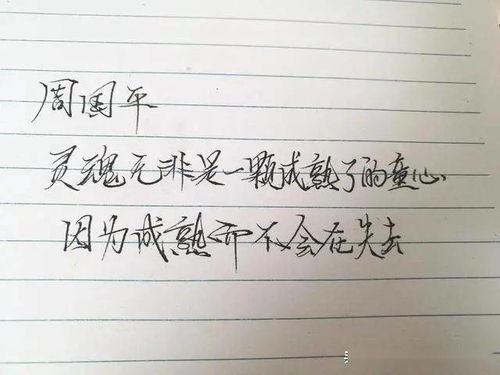 周国平
灵魂无非是一颗成熟了的童心
因为成熟而不会在失去